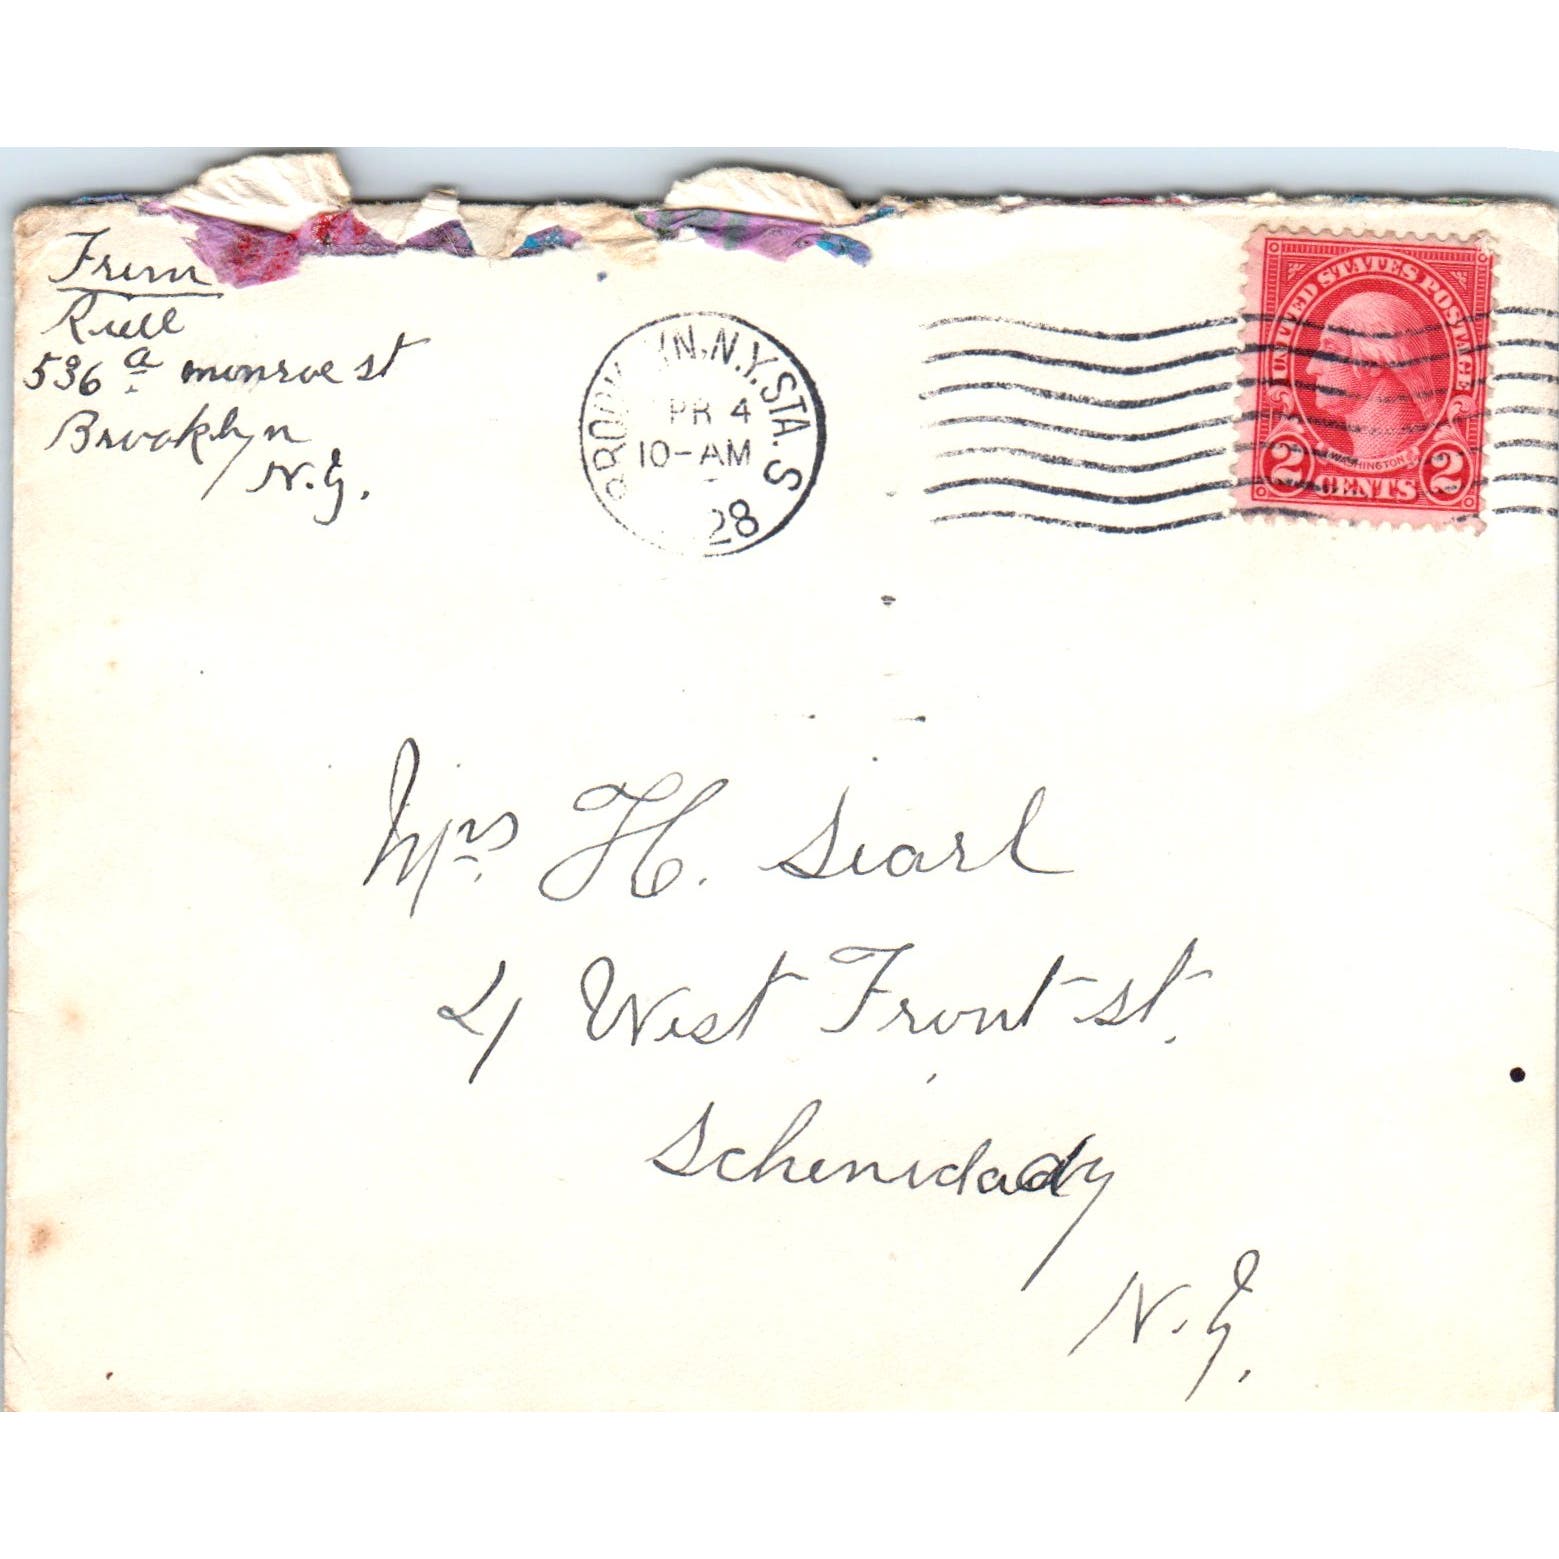 From
Rull
536 a monroe st
Brooklyn
N.Y.
N.Y. STA. S
APR 4
10-AM
28
UNITED STATES POSTAGE
WASHINGTON
2 CENTS 2
Mrs. H. Searl
4 West Front st.
Schenidady
N.Y.